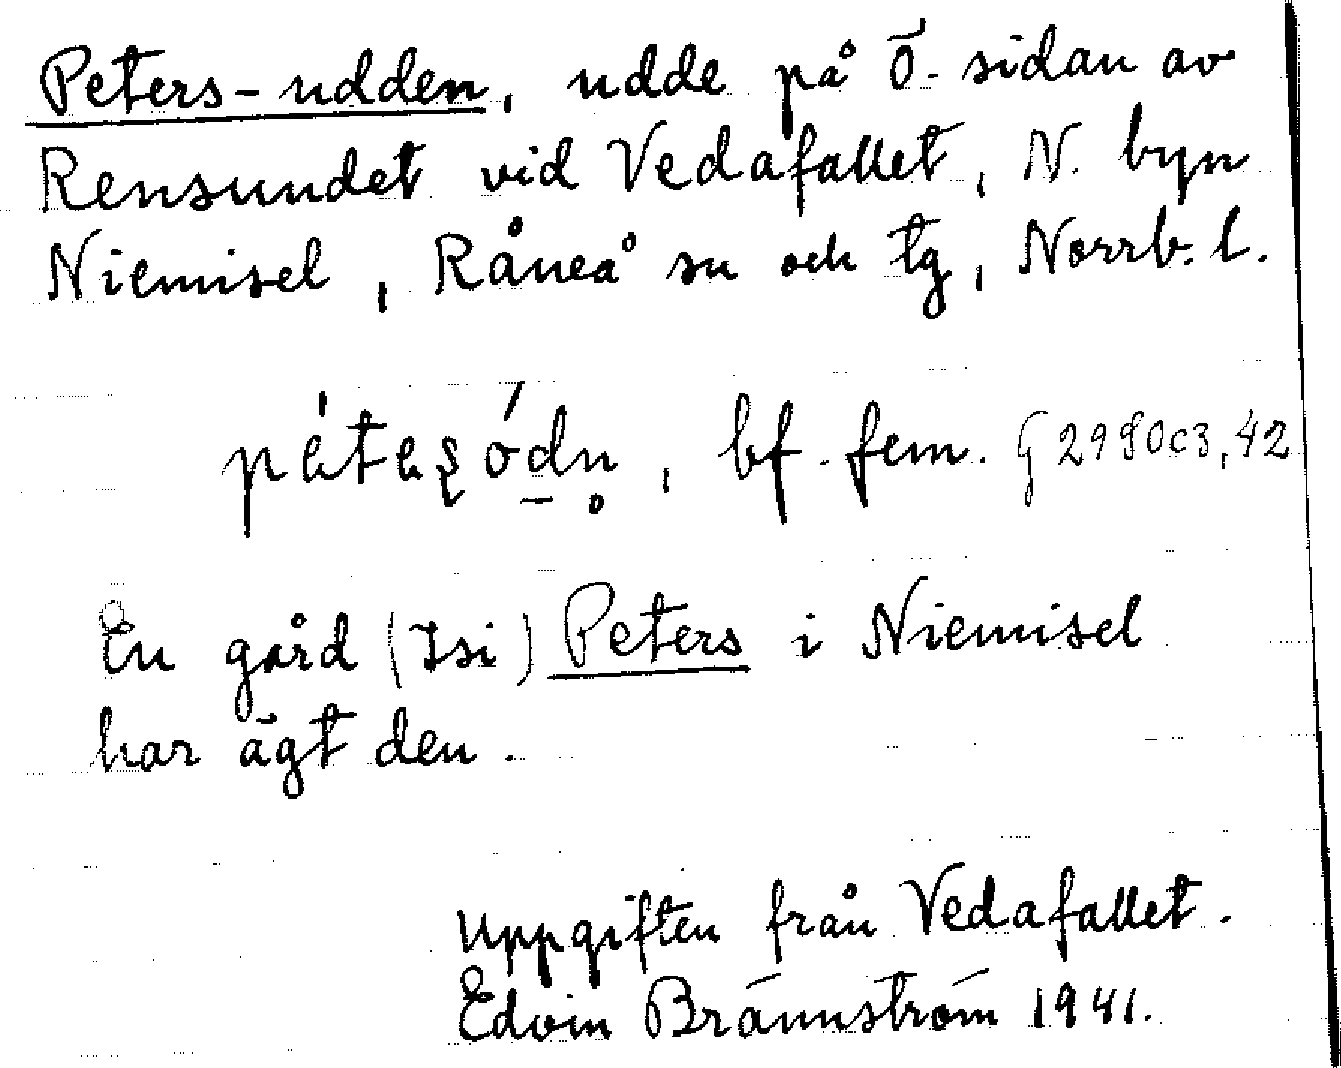 Peters-udden, udde på Ö-sidan av
Rensundet vid Vedafallet, N. byn
Niemisel, Råneå sn och tg, Norrb. l.
bf. fem. § 2980c3,42
En gård (Isi) Peters i Niemisel
har ägt den.
Uppgiften från Vedafallet.
Edvin Brännström 1941.